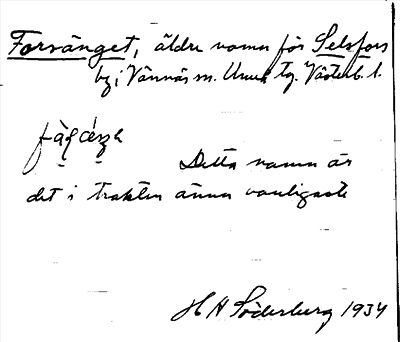 Forsänget, äldre namn för Selsfors
by i Vännäs sn. Umeå tg. Västerb. l.
Detta namn är
det i trakten ännu vanligaste
H N Söderberg 1934